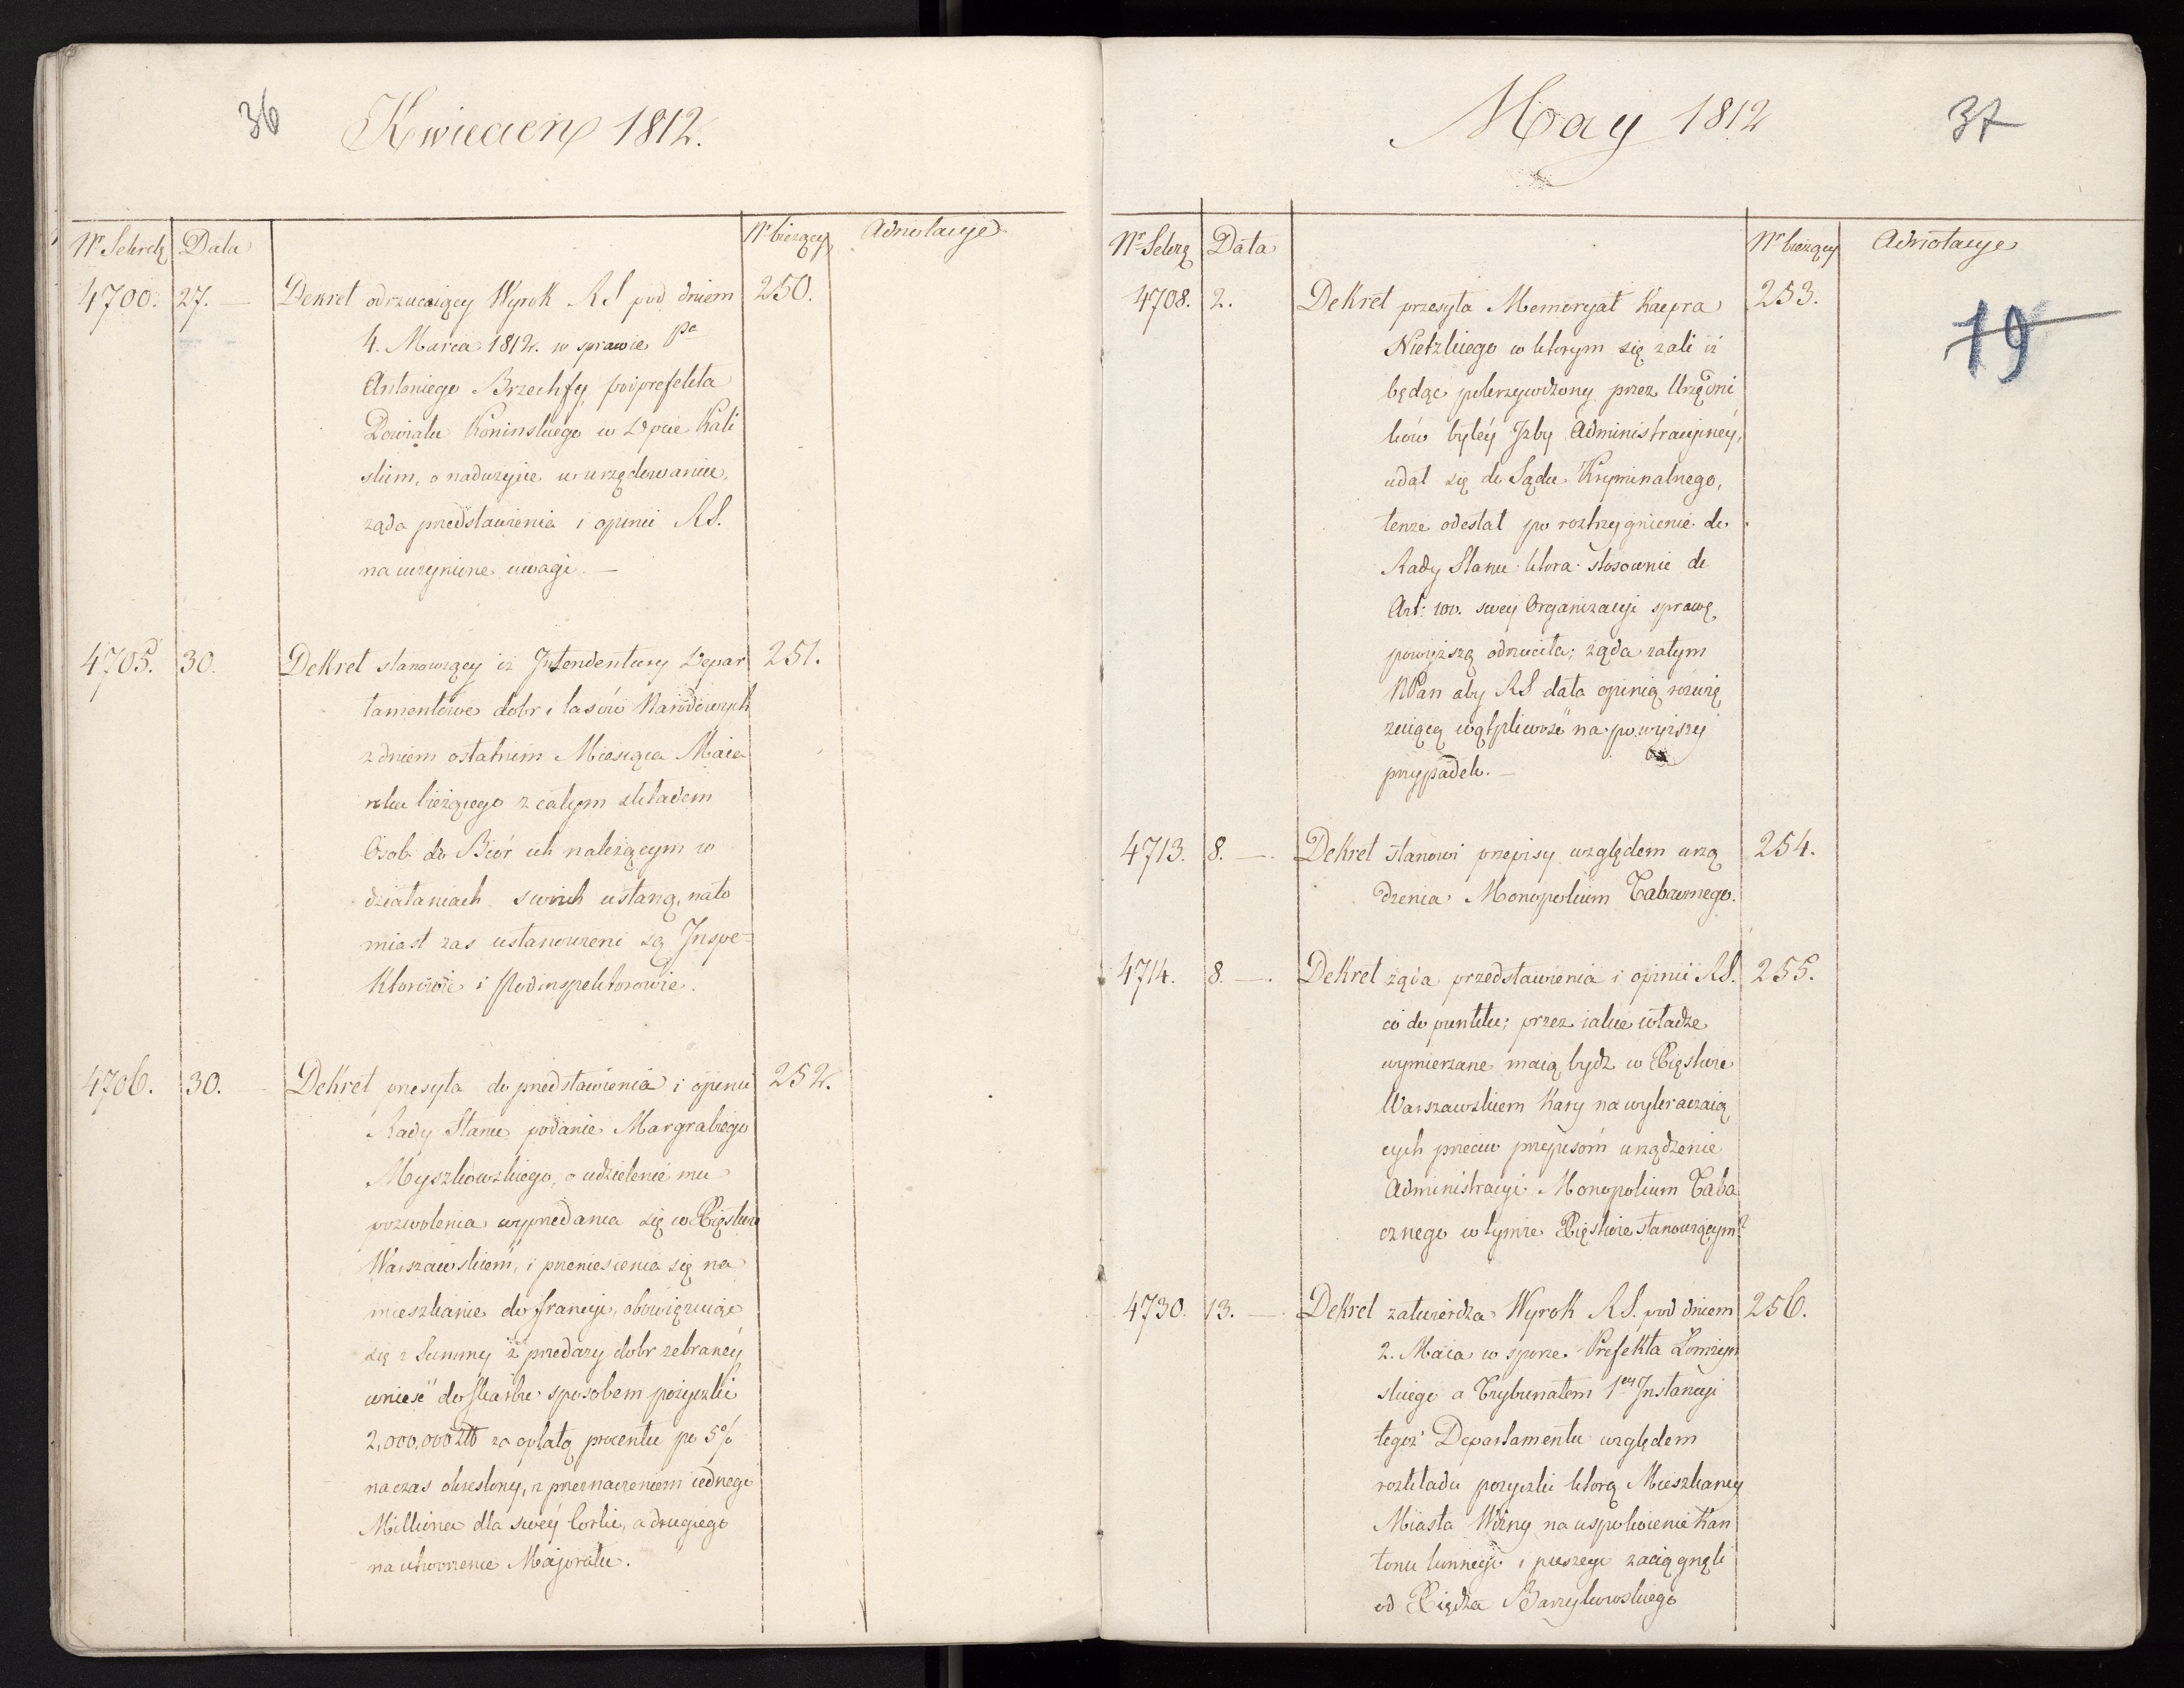 36
Kwiecień 1812.
Nr Sekretz Data Nr bieżący Adnotacye
4700. 27. — Dekret odrzucaiący Wyrok RS pod dniem 250.
4. Marca 1812. w sprawie Pa
Antoniego Brzechfy podprefekta
Powiatu Koninskiego w Dpcie Kali
skim, o nadużycie w urzędowaniu,
żąda przedstawienia i opinii RS.
na uczynione uwagi. —
4705. 30. Dekret stanowiący iż Intendentury Depar 251.
tamentowe dobr i lasów Narodowych
z dniem ostatnim Miesiąca Maia
roku bieżącego z całym składem
Osob do Biór ich należącym w
działaniach swoich ustaną, nato
miast zas ustanowieni są Inspe=
ktorowie i Podinspektorowie.
4706. 30. Dekret przesyła do przedstawienia i opinii 252.
Rady Stanu podanie Margrabiego
Myszkowskiego, o udzielenie mu
pozwolenia wyprzedania się w Xięstwie
Warszawskiem, i przeniesienia się na
mieszkanie do francyi, obowiązuiąc
się z Summy z przedaży dobr zebraney
wnieść do skarbu sposobem pożyczki
2,000,000 Złt za opłatą procentu po 5%
na czas okreslony, z przeznaczeniem iednego
Milliona dla swéy Corki, a drugiego
na utworzenie Majoratu.
May 1812
37
Nr Sekrę Data Nr bieżący Adnotacye
4708. 2. Dekret przesyła Memoryał Kacpra 253.
19
Nietzkiego w ktorym się żali iż
będąc pokrzywdzony przez Urzędni
ków byłéy Izby Administracyinéy,
udał się do Sądu Kryminalnego,
tenże odesłał po roztrzygnienie do
Rady Stanu ktora stosownie do
Art: 100. swey Organizacyi sprawę
powyższą odrzuciła; żąda zatym
NPan aby RS dała opinią rozwią
zuiącą wątpliwość na powyższy
przypadek. —
4713. 8. —. Dekret stanowi przepisy względem urzą 254.
dzenia Monopolium Tabacznego.
4714. 8. —. Dekret żąda przedstawienia i opinii RS. 255.
co do punktu; przez iakie władze
wymierzane maią bydz w Xięstwie
Warszawskiem Kary na wykraczaią
cych przeciw przepisom urządzenie
Administracyi Monopolium Taba
cznego w tymże Xięstwie stanowiącym?
4730. 13. —. Dekret zatwierdza Wyrok RS. pod dniem 256.
2. Maia w sporze Prefekta Łomżyn
skiego a Trybunałem 1ey Instancyi
tegoż Departamentu względem
rozkładu pożyczki ktorą Mieszkancy
Miasta Wizny na uspokoienie Kan
tonu konnego i pieszego zaciągnęli
od Xiędza Barzykowskiego